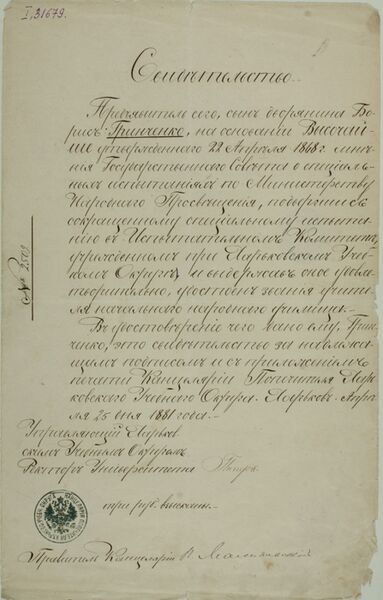 I, 31679.
Свидѣтельство.
Предъявитель сего, сынъ дворянина Бо-
рисъ Гринченко, на основаніи Высочай-
ше утвержденнаго 22 Апрѣля 1868 г. мнѣ-
нія Государственнаго Совѣта о спеціаль-
ныхъ испытаніяхъ по Министерству
Народнаго Просвѣщенія, подвергшись
сокращенному спеціальному испыта-
нію въ Испытательномъ Комитетѣ,
учрежденномъ при Харьковскомъ Учеб-
номъ Округѣ, и выдержавъ оное удовле-
творительно, удостоенъ званія учите-
ля начальнаго народнаго училища.
Въ удостовѣреніе чего дано ему, Грин-
ченко, это свидѣтельство за надлежа-
щимъ подписомъ и съ приложеніемъ
печати Канцеляріи Попечителя Харь-
ковскаго Учебнаго Округа. Харьковъ. Апрѣ-
ля 25 дня 1881 года.
№ 2509
Управляющій Харьков-
скимъ Учебнымъ Округомъ,
Ректоръ Университета
три руб. взысканы.
Правитель Канцеляріи